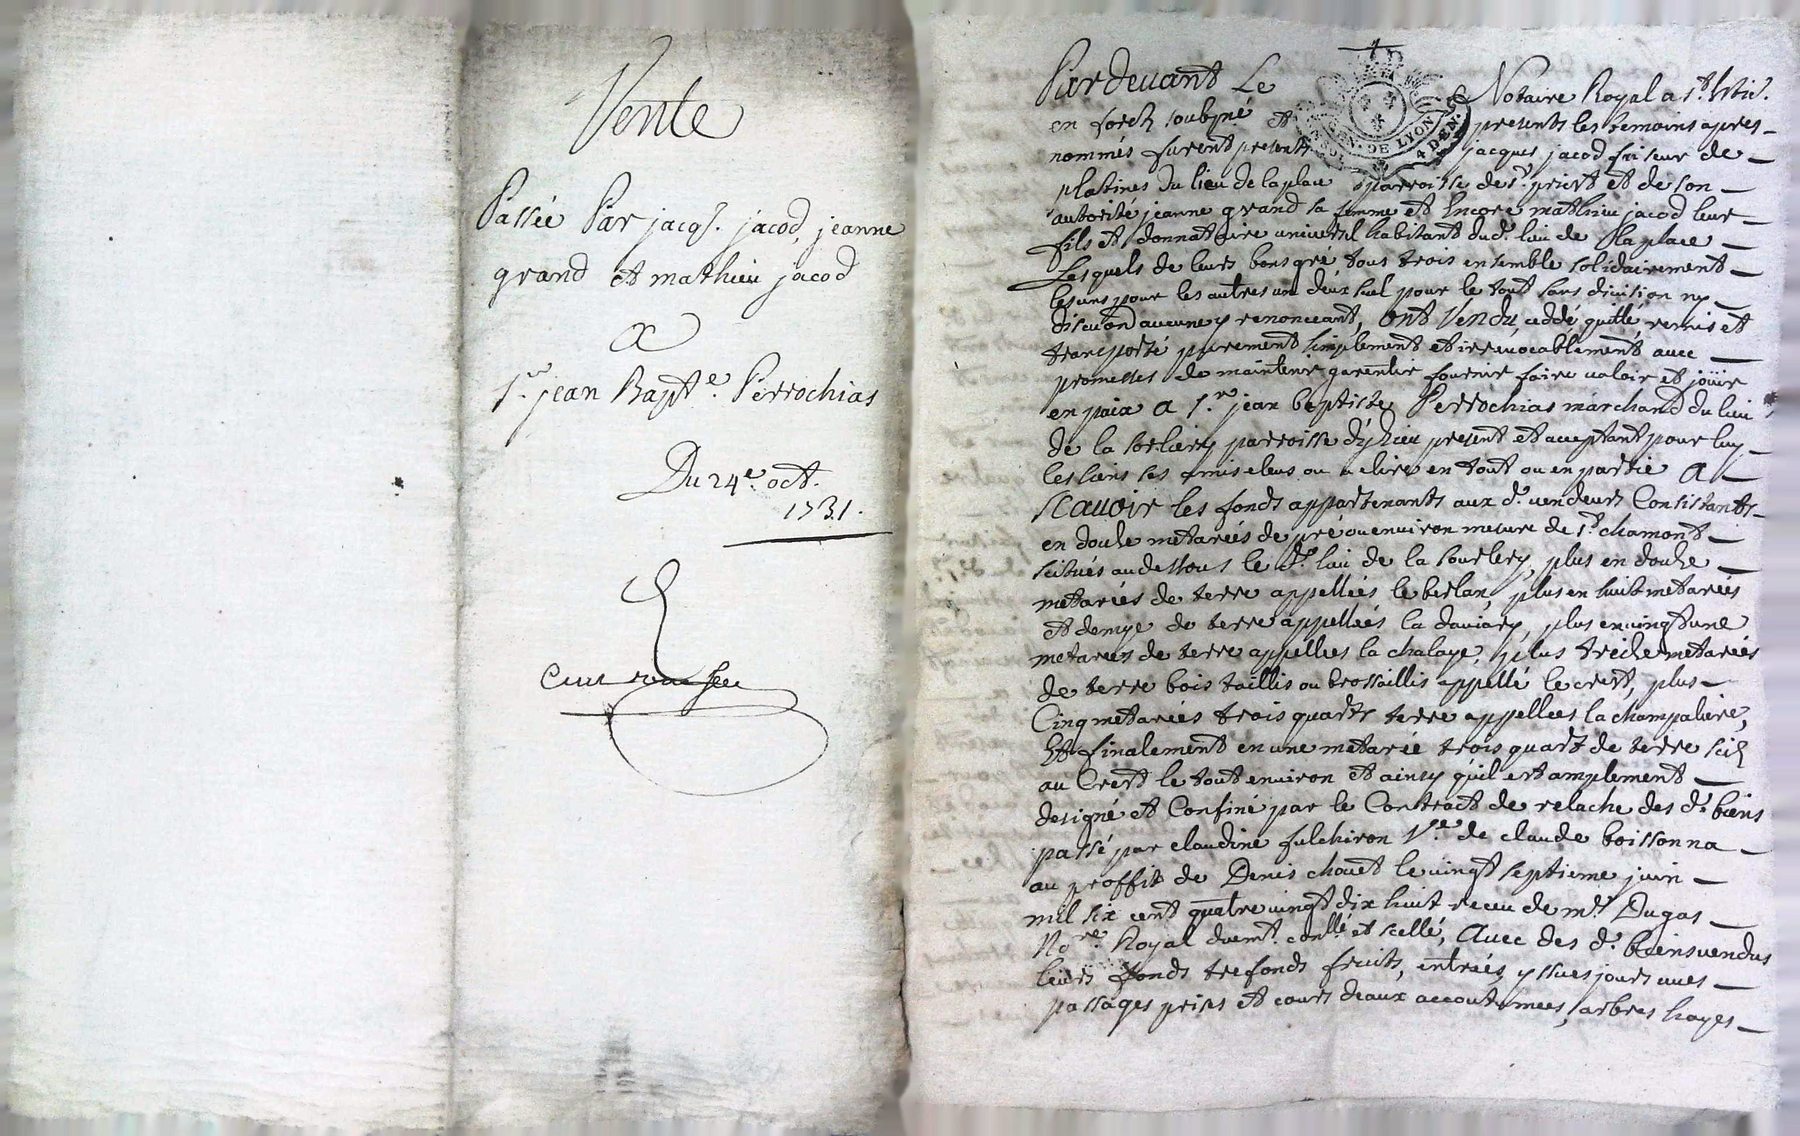 Vente
Passée Par jacq.s jacod, jeanne
grand et mathieu jacod
a
s.r jean Bapt.e Perrochias
Du 24.e oct.
1731.
Pardevant Le Notaire Royal a s.t
en forez soubz.né et presents les temoins apres
nommés furent presents jacques jacod friseur de
platines du lieu de la place parroisse de s.t priest et de son
autorité jeanne grand sa femme et Encore mathieu jacod leur
fils et donnataire universel habitant dud.t lieu de la place
Lesquels de leurs bons gré tous trois ensemble solidairement
les uns pour les autres un deux seul pour le tout sans division ny
discu͠on aucune y renonceant, ont Vendu, ceddé, quitté, remis et
transporté purement simplement et irrevocablement avec
promesses de maintenir garentir fournir faire valoir et joüir
en paix a s.r jean baptiste Perrochias marchand du lieu
de la sorliery parroisse d'yzieu present et acceptant pour luy
les siens ses amis eleus ou a elire en tout ou en partie A
SCAVOIR les fonds appartenants aux d.s vendeurs Consistants
en douze metariés de pré ou environ mesure de s.t chamont
scitués au dessous le d.t lieu de la sourlery, plus en douze
metariés de terre appellés le berlan, plus en huit metariés
et demye de terre appellés la daviary, plus en vingt une
metariés de terre appellées la chalaye, plus treize metariés
de terre bois taillis ou brossaillis appellé le crest, plus
Cinq metariés trois quarts terre appellées la champaliere,
Et finalement en une metarié trois quart de terre scis
au Crest le tout environ et ainsy qu'il est amplement
designé et Confiné par le Contract de relache des d.s biens
passé par claudine fulchiron V.e de claude boissonna
au proffit de Denis chouet le vingt septieme juin
mil six cent quatre vingt dix huit receu de m.e Dugas
No.re Royal duem.t con.llé et scellé, Avec des d.s biens vendus
leurs fonds trefonds fruits, entrées, yssues jours vues
passages prises et cours deaux accoutumées, arbres hayes
GEN. DE LYON
4 DEN.